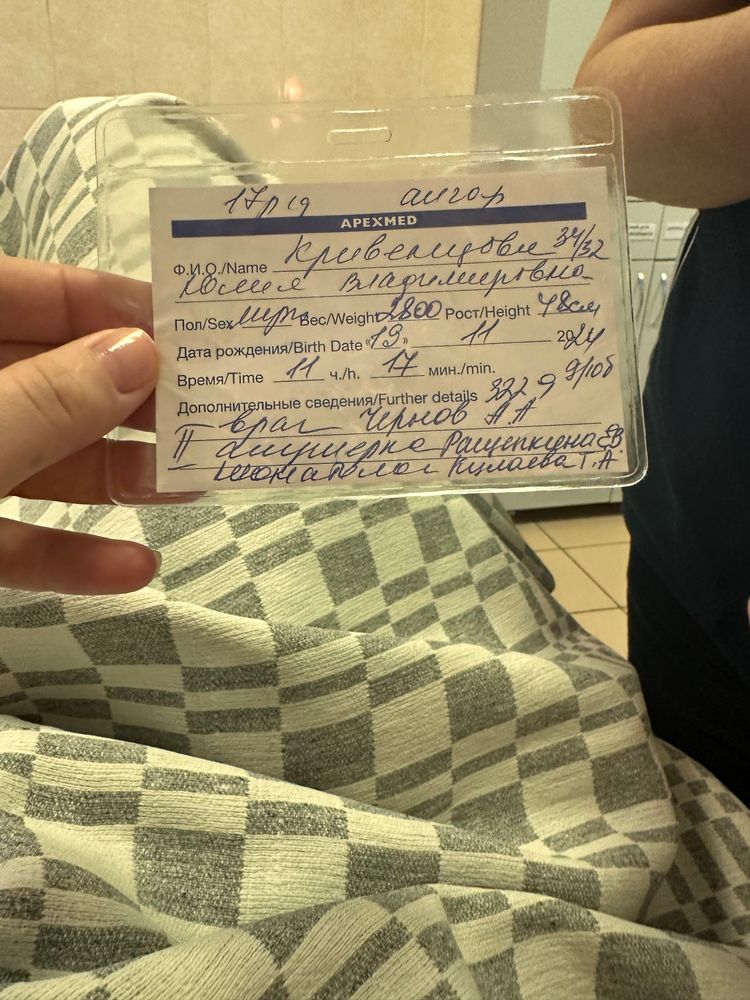 17 р/д
APEXMED
Ф.И.О./Name Кривенцова 34/32
Юлия Владимировна
Пол/Sex муж Вес/Weight 2800 Рост/Height 48см
Дата рождения/Birth Date «19» 11 2024
Время/Time 11 ч./h. 17 мин./min.
Дополнительные сведения/Further details 322 g 9/10б
врач Чернов А.А
II акушерка Ращепкина Е.В.
Кулаева Т.А